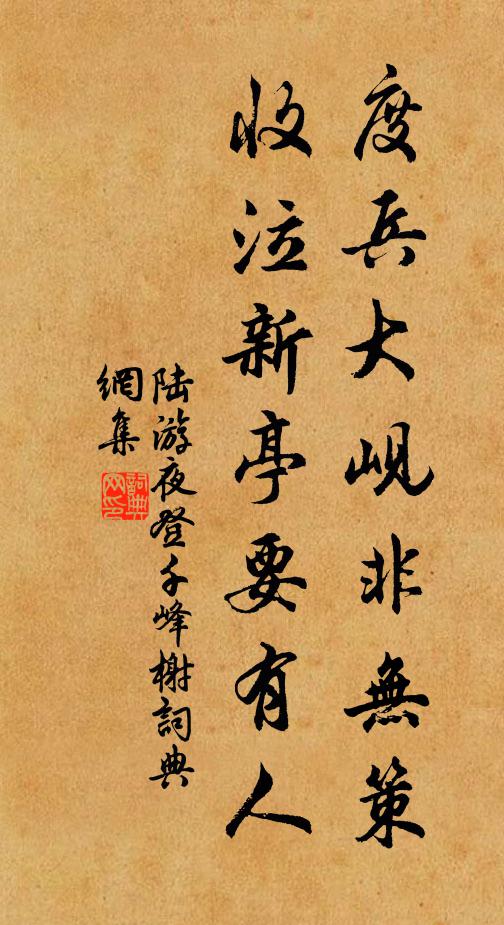 度兵大峴非無策
收泣新亭要有人
陆游夜登千峰榭詞典
網集
詞典
网印